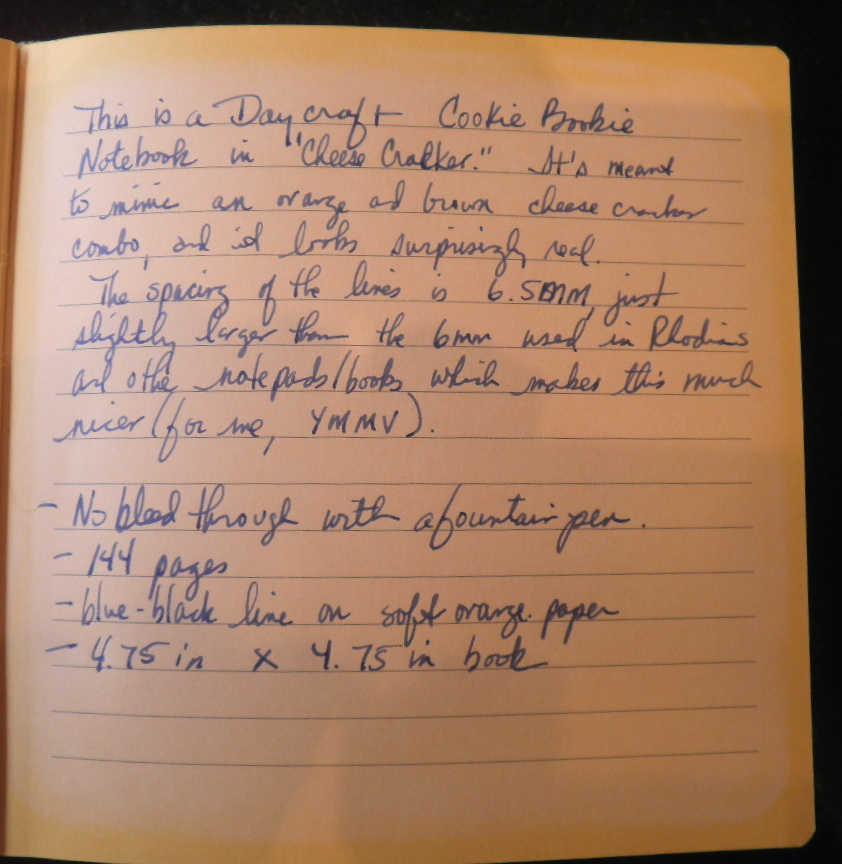 This is a Daycraft Cookie Bookie
Notebook in "Cheese Cracker." It's meant
to mimic an orange and brown cheese cracker
combo, and it looks surprisingly real.
The spacing of the lines is 6.5mm, just
slightly larger than the 6mm used in Rhodias
and other notepads/books which makes this much
nicer (for me, YMMV).
- No bleed through with a fountain pen.
- 144 pages
- blue-black line on soft orange paper
- 4.75 in x 4.75 in book